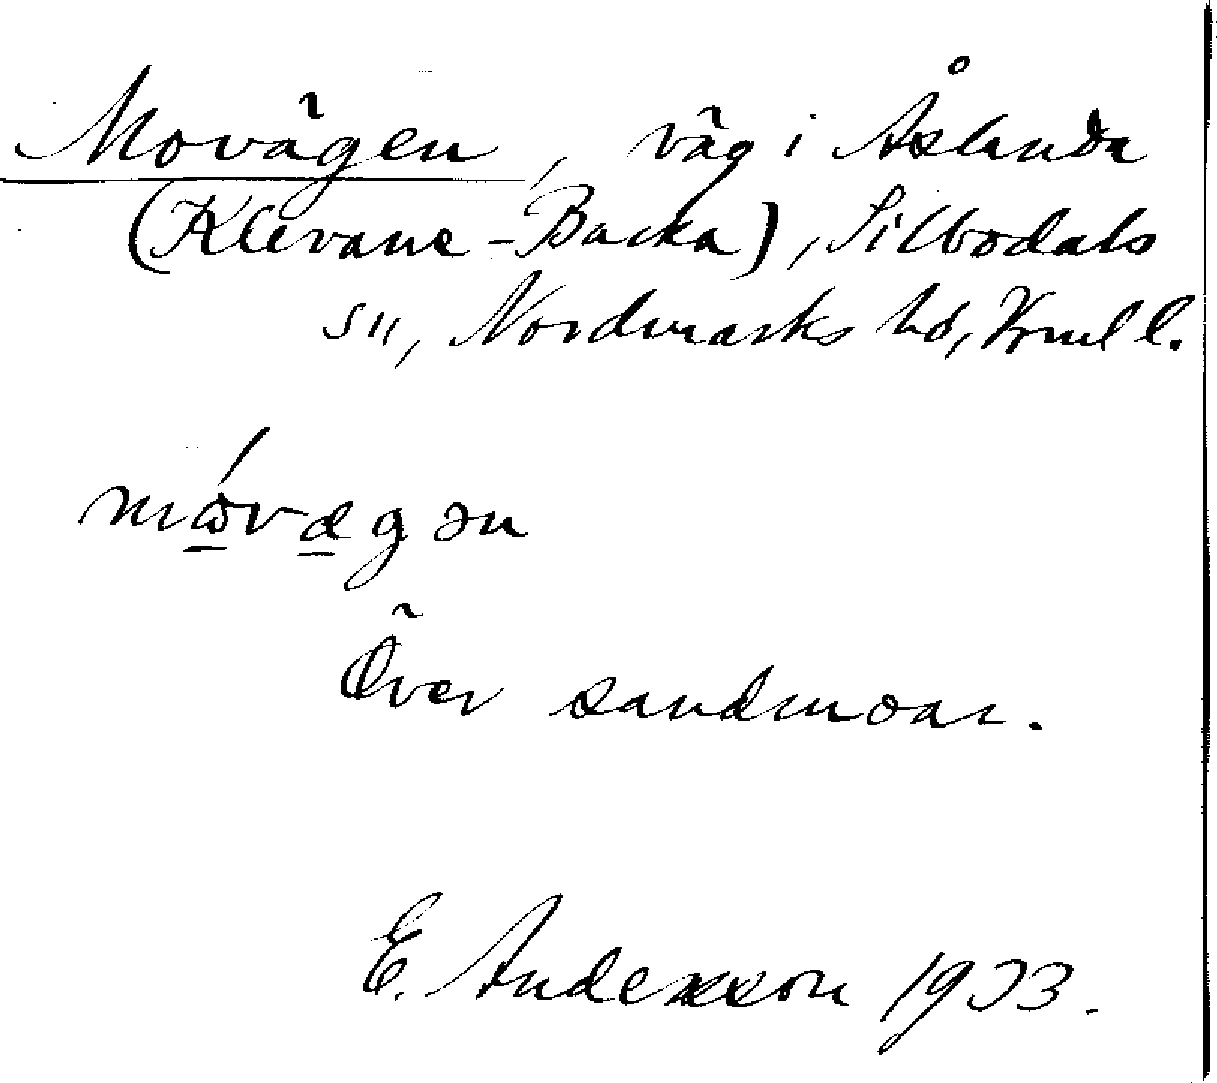 Movägen, väg i Åslanda
(Klevane-Backa), Silbodals
sn, Nordmarks hd, Vrml l.
mώvægən
Över sandmoar.
E. Andersson 1933.